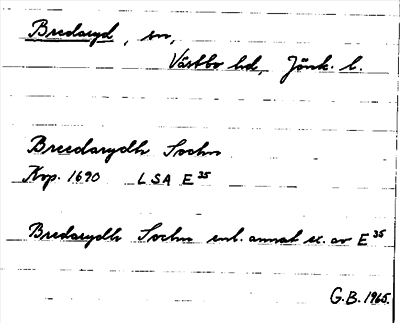 Bredaryd, sn,
Västbo hd, Jönk. l.
Breedarydh Sochn
Kop. 1690 LSA E 35
Bredarydh Sochn enl. annat ex. av E 35
G.B. 1965.